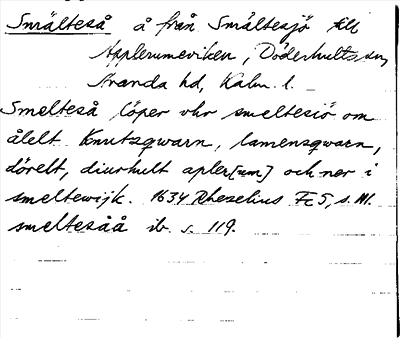 Smälteså å från Smältesjö till
Applerumeviken, Döderhults sn,
Handa hd, Kalm. l.
Smelteså löper uhr smeltesiö om
ålelt Knutzqwarn, lamensqwarn,
dörelt, diurhult apler[um] och ner i
smeltewijk. 1634 Rhezelius Fc5, s. 111.
smeltesåå ib. s. 119.